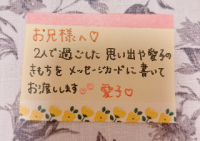 お兄様へ♡
2人で過ごした思い出や愛子の
きもちをメッセージカードに書いて
お渡しします♡♡ 愛子♡